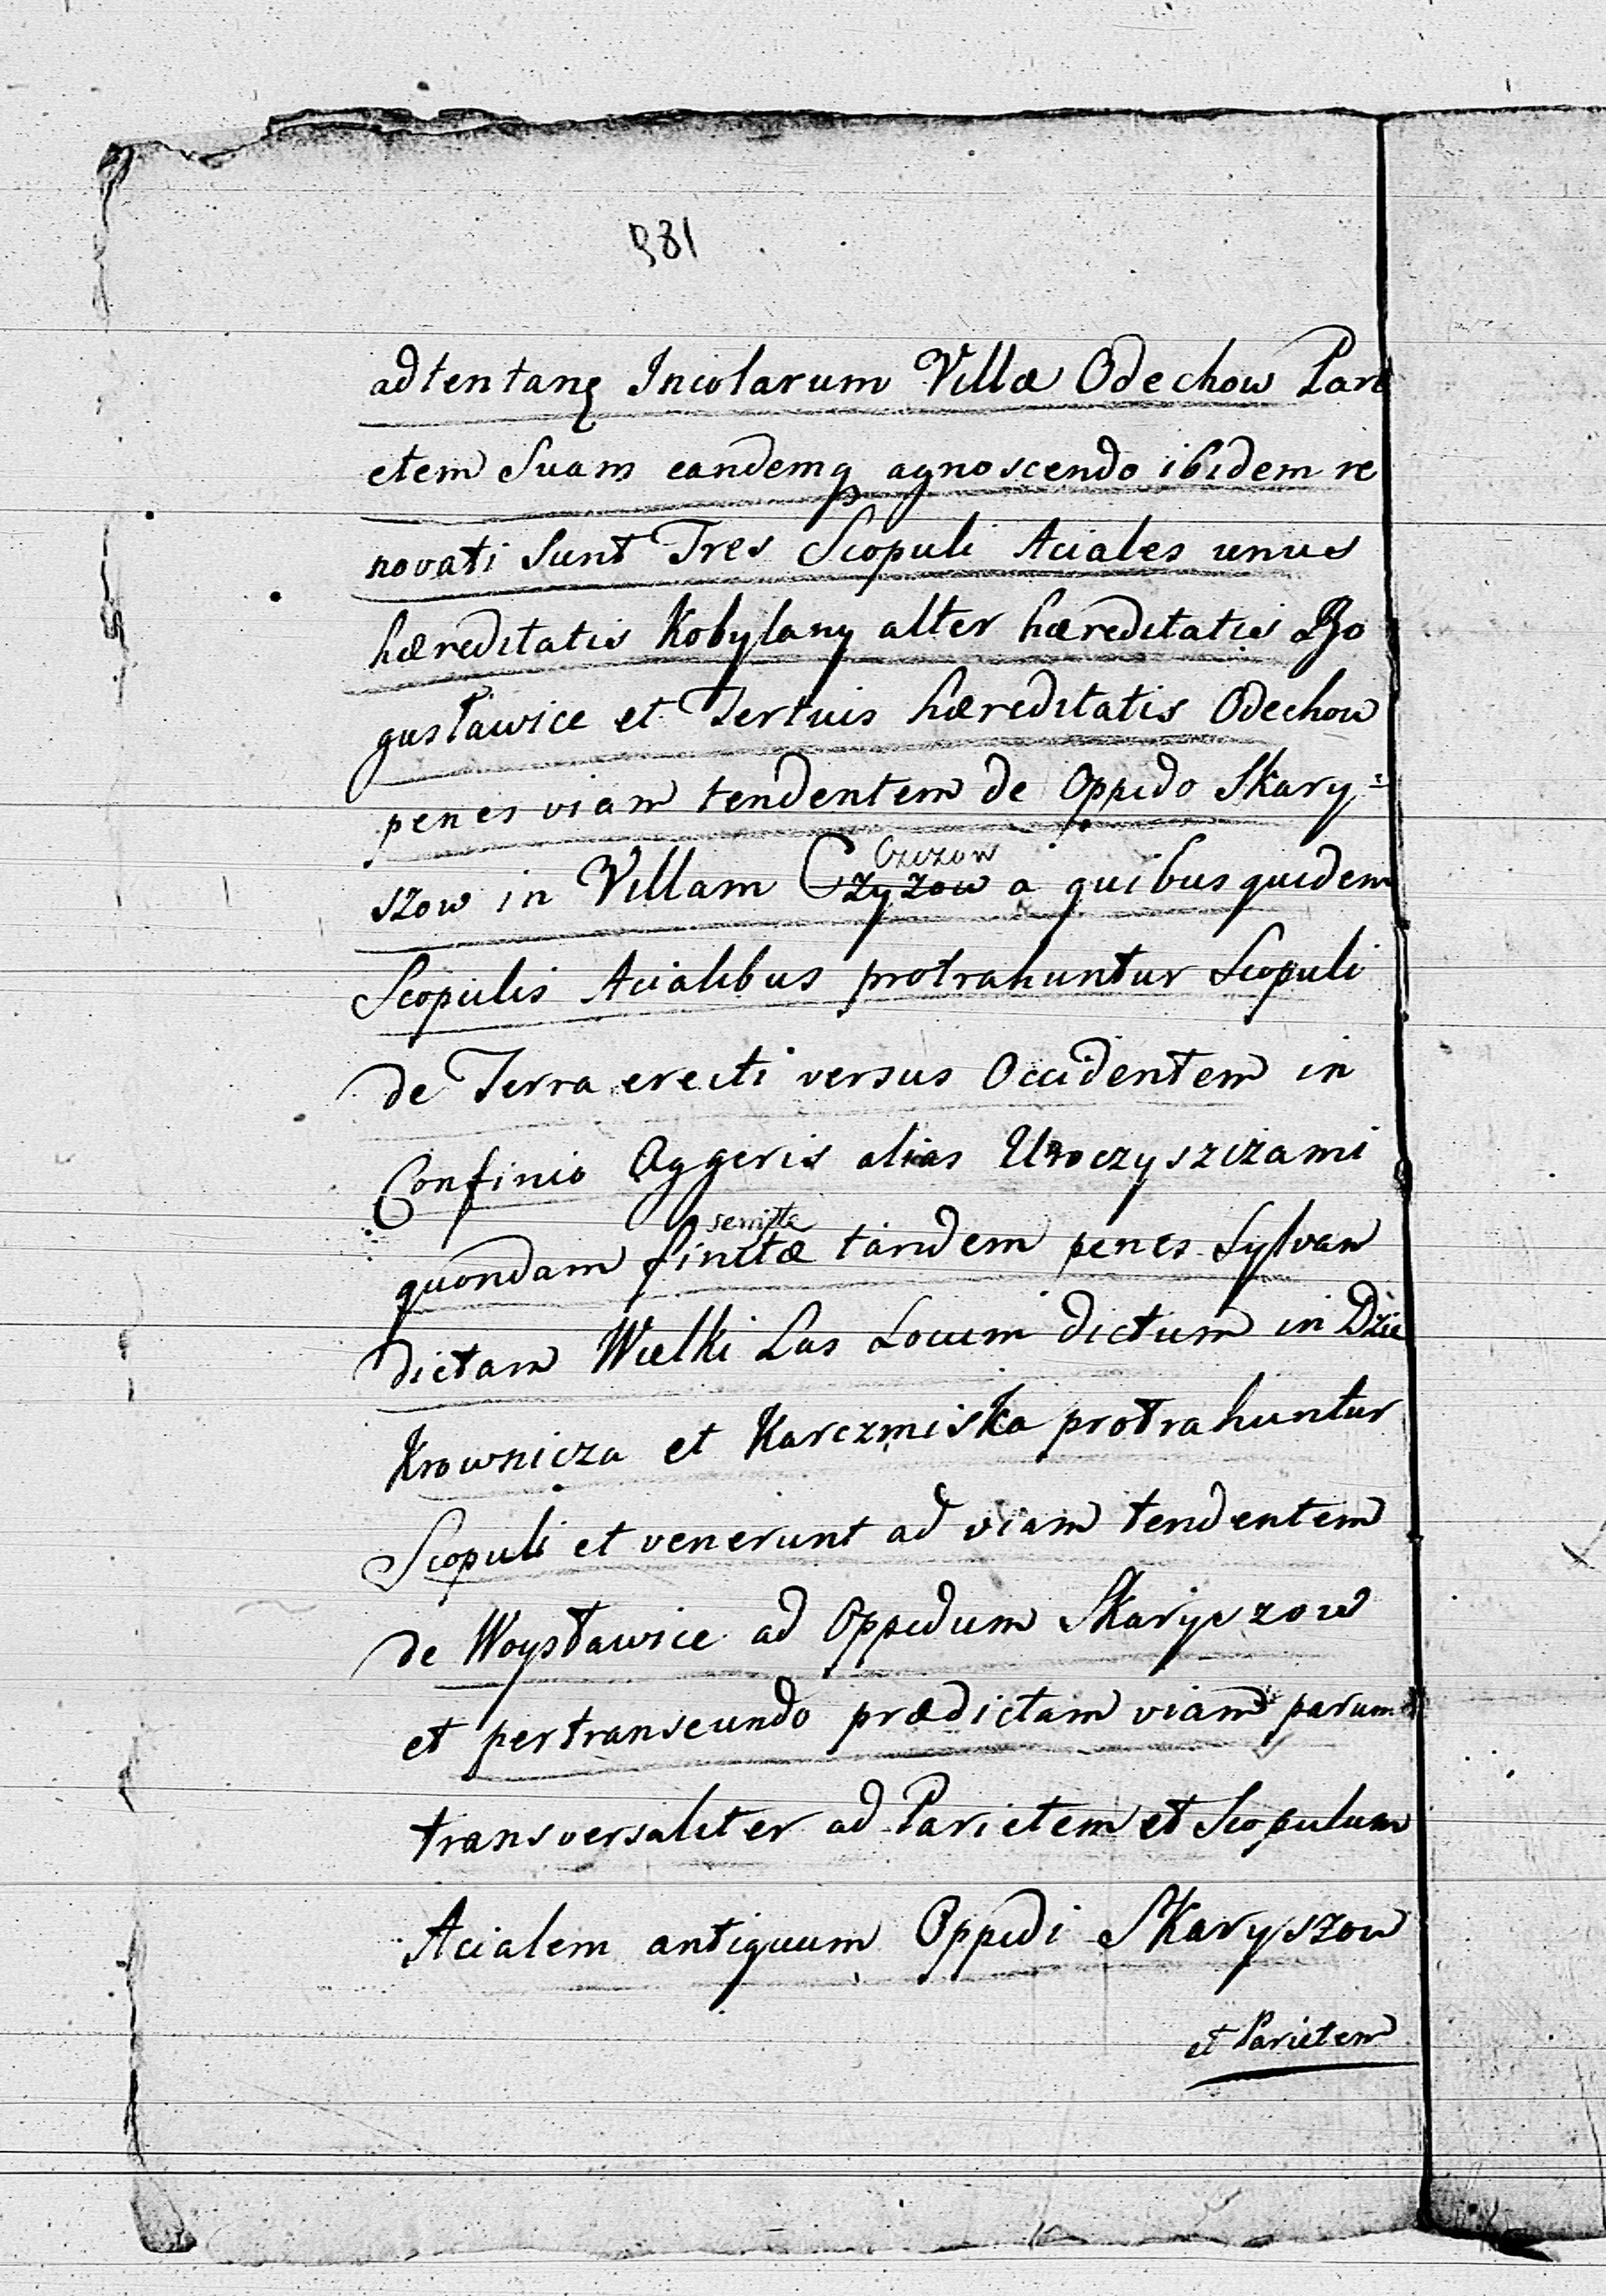 981
adtentanę Incolarum Villæ Odechow Pari
etem Suam eandemq agnoscendo ibidem re
novati Sunt Tres Scopuli Aciales unus
hæreditatis Kobylany alter hæreditatis Bo
gusławice et Tertius hæreditatis Odechow
penes viam tendentem de Oppido Skary=
Czczow
szow in Villam Czyzow a quibus quidem
Scopulis Acialibus protrahuntur Scopuli
de Terra erecti versus Occidentem in
Confinio Aggeris alias Uroczyszczami
semitæ
quondam finitæ tandem penes Sylvam
dictam Wielki Las Locum dictum in Dzie
Krownicza et Karczmiska protrahuntur
Scopuli et venerunt ad viam tendentem
de Woysławice ad Oppidum Skaryszow
et pertranseundo prædictam viam parum
transversaliter ad Parietem et Scopulum
Acialem antiquum Oppidi Skaryszow
et Parietem